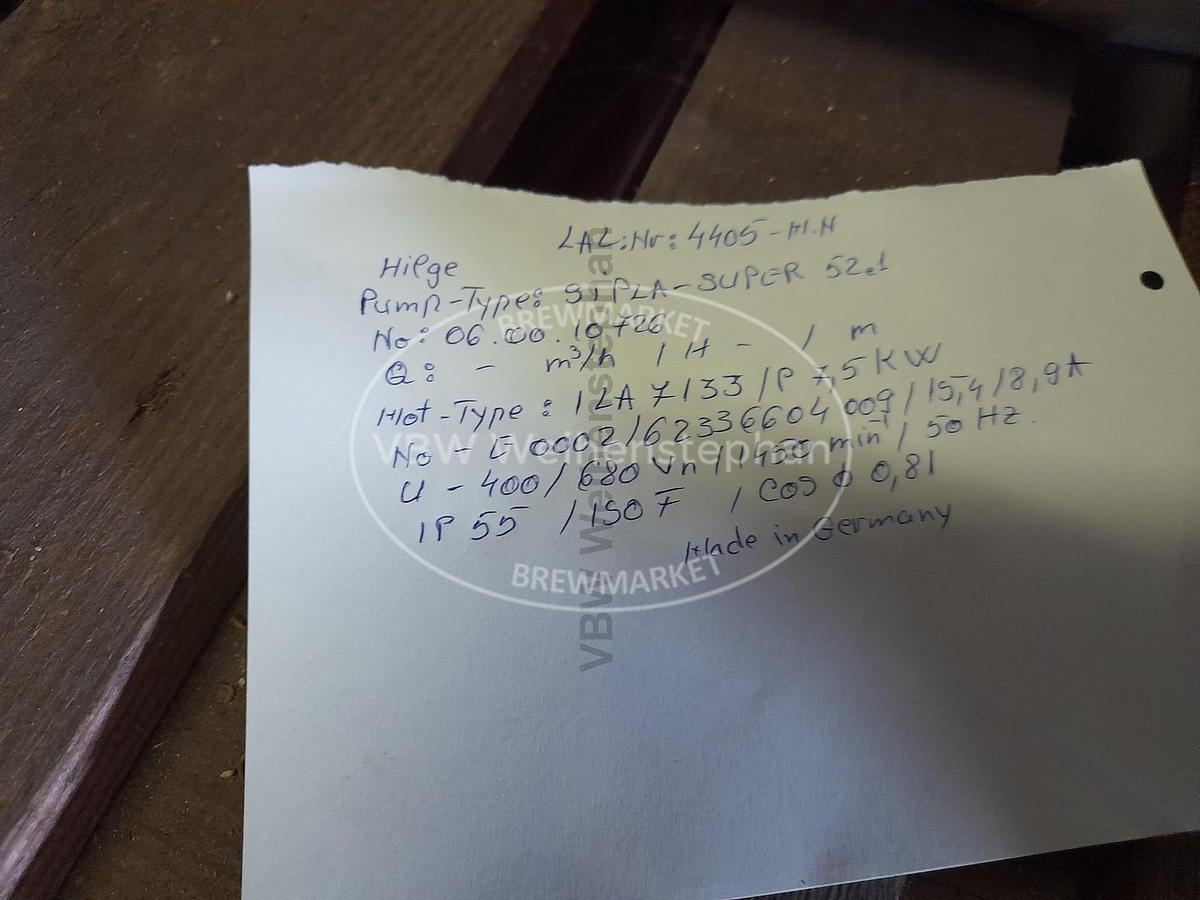 LAL:Nr: 4405-M.N
Hilge
Pump-Type: SIPLA-SUPER 52.1
No: 06.00.10726
Q: - m³/h / H - / m
Mot-Type: 1LA 7133 /P 7,5 KW
No - E0002/62336604 009/15,4/8,9A
U - 400/680 Vn/1450 min⁻¹/ 50 Hz.
IP 55 /ISO F / Cos φ 0,81
Made in Germany
BREWMARKET
VBW Weihenstephan
BREWMARKET
VBW Weihenstephan